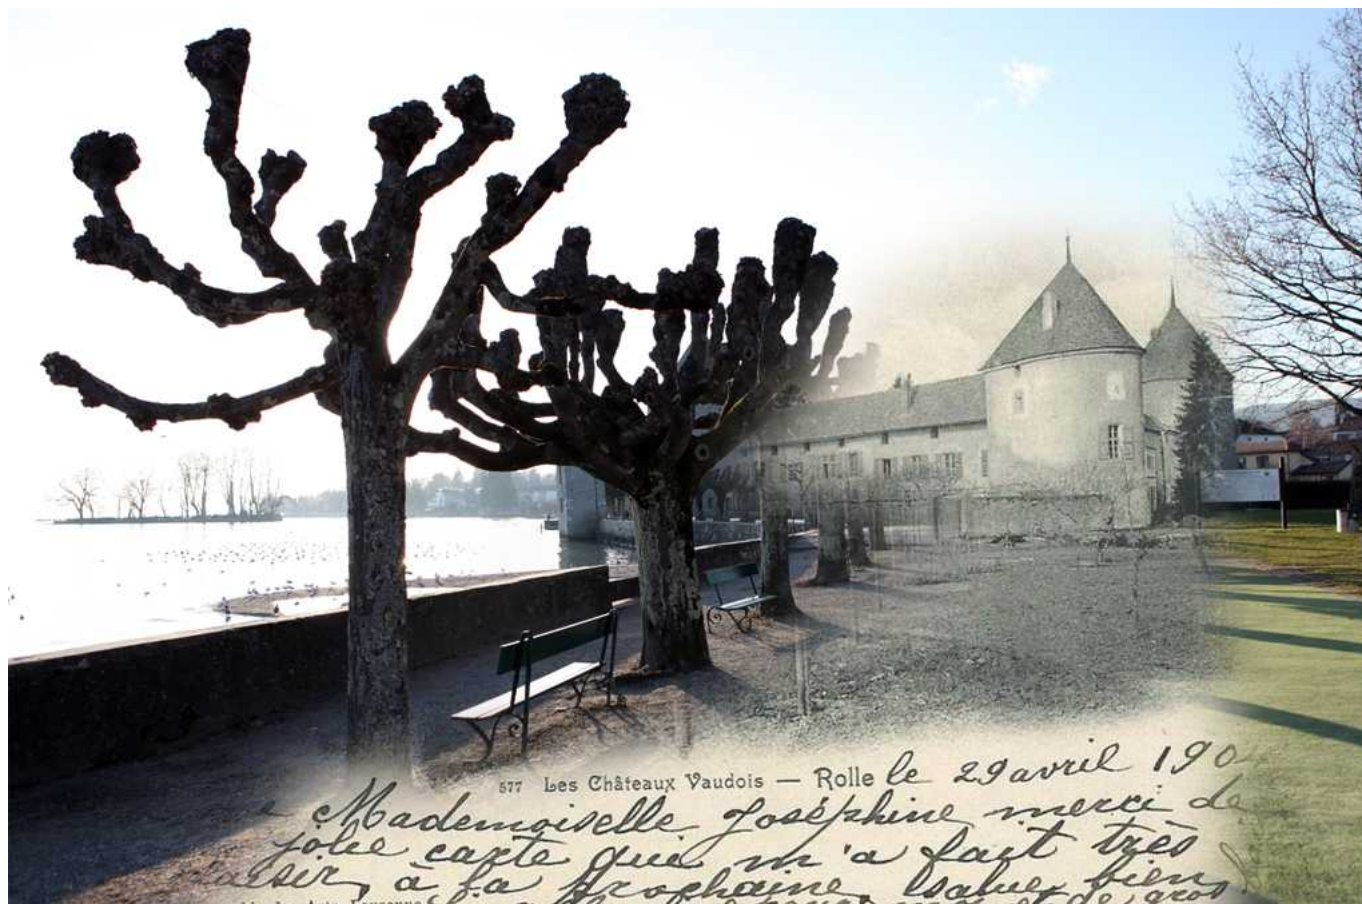 577 Les Châteaux Vaudois — Rolle le 29 avril 190
Mademoiselle Joséphine merci de
jolie carte qui m'a fait très
aisir, à la prochaine, bien
et de gros